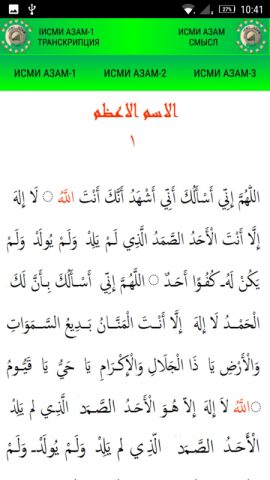 10:41
27%
IИСМИ АЗАМ-1
ТРАНСКРИПЦИЯ
ИСМИ АЗАМ
СМЫСЛ
ИСМИ АЗАМ-1 ИСМИ АЗАМ-2 ИСМИ АЗАМ-3
الاسم الاعظم
١
اللَّهُمَّ إِنِّي أَسْأَلُكَ أَنِّي أَشْهَدُ أَنَّكَ أَنْتَ اللَّهُ لَا إِلَهَ
إِلَّا أَنْتَ الْأَحَدُ الصَّمَدُ الَّذِي لَمْ يَلِدْ وَلَمْ يُولَدْ وَلَمْ
يَكُنْ لَهُ كُفُوًا أَحَدٌ اللَّهُمَّ إِنِّي أَسْأَلُكَ بِأَنَّ لَكَ
الْحَمْدُ لَا إِلَهَ إِلَّا أَنْتَ الْمَنَّانُ بَدِيعُ السَّمَوَاتِ
وَالْأَرْضِ يَا ذَا الْجَلَالِ وَالْإِكْرَامِ يَا حَيُّ يَا قَيُّومُ
اللَّهُ لَا إِلَهَ إِلاَّ هُوَ الْأَحَدُ الصَّمَدُ الَّذِي لم يَلِدْ
الْأَحَدُ الصَّمَدُ الَّذِي لم يَلِدْ وَلَمْ يُولَدْ وَلَمْ